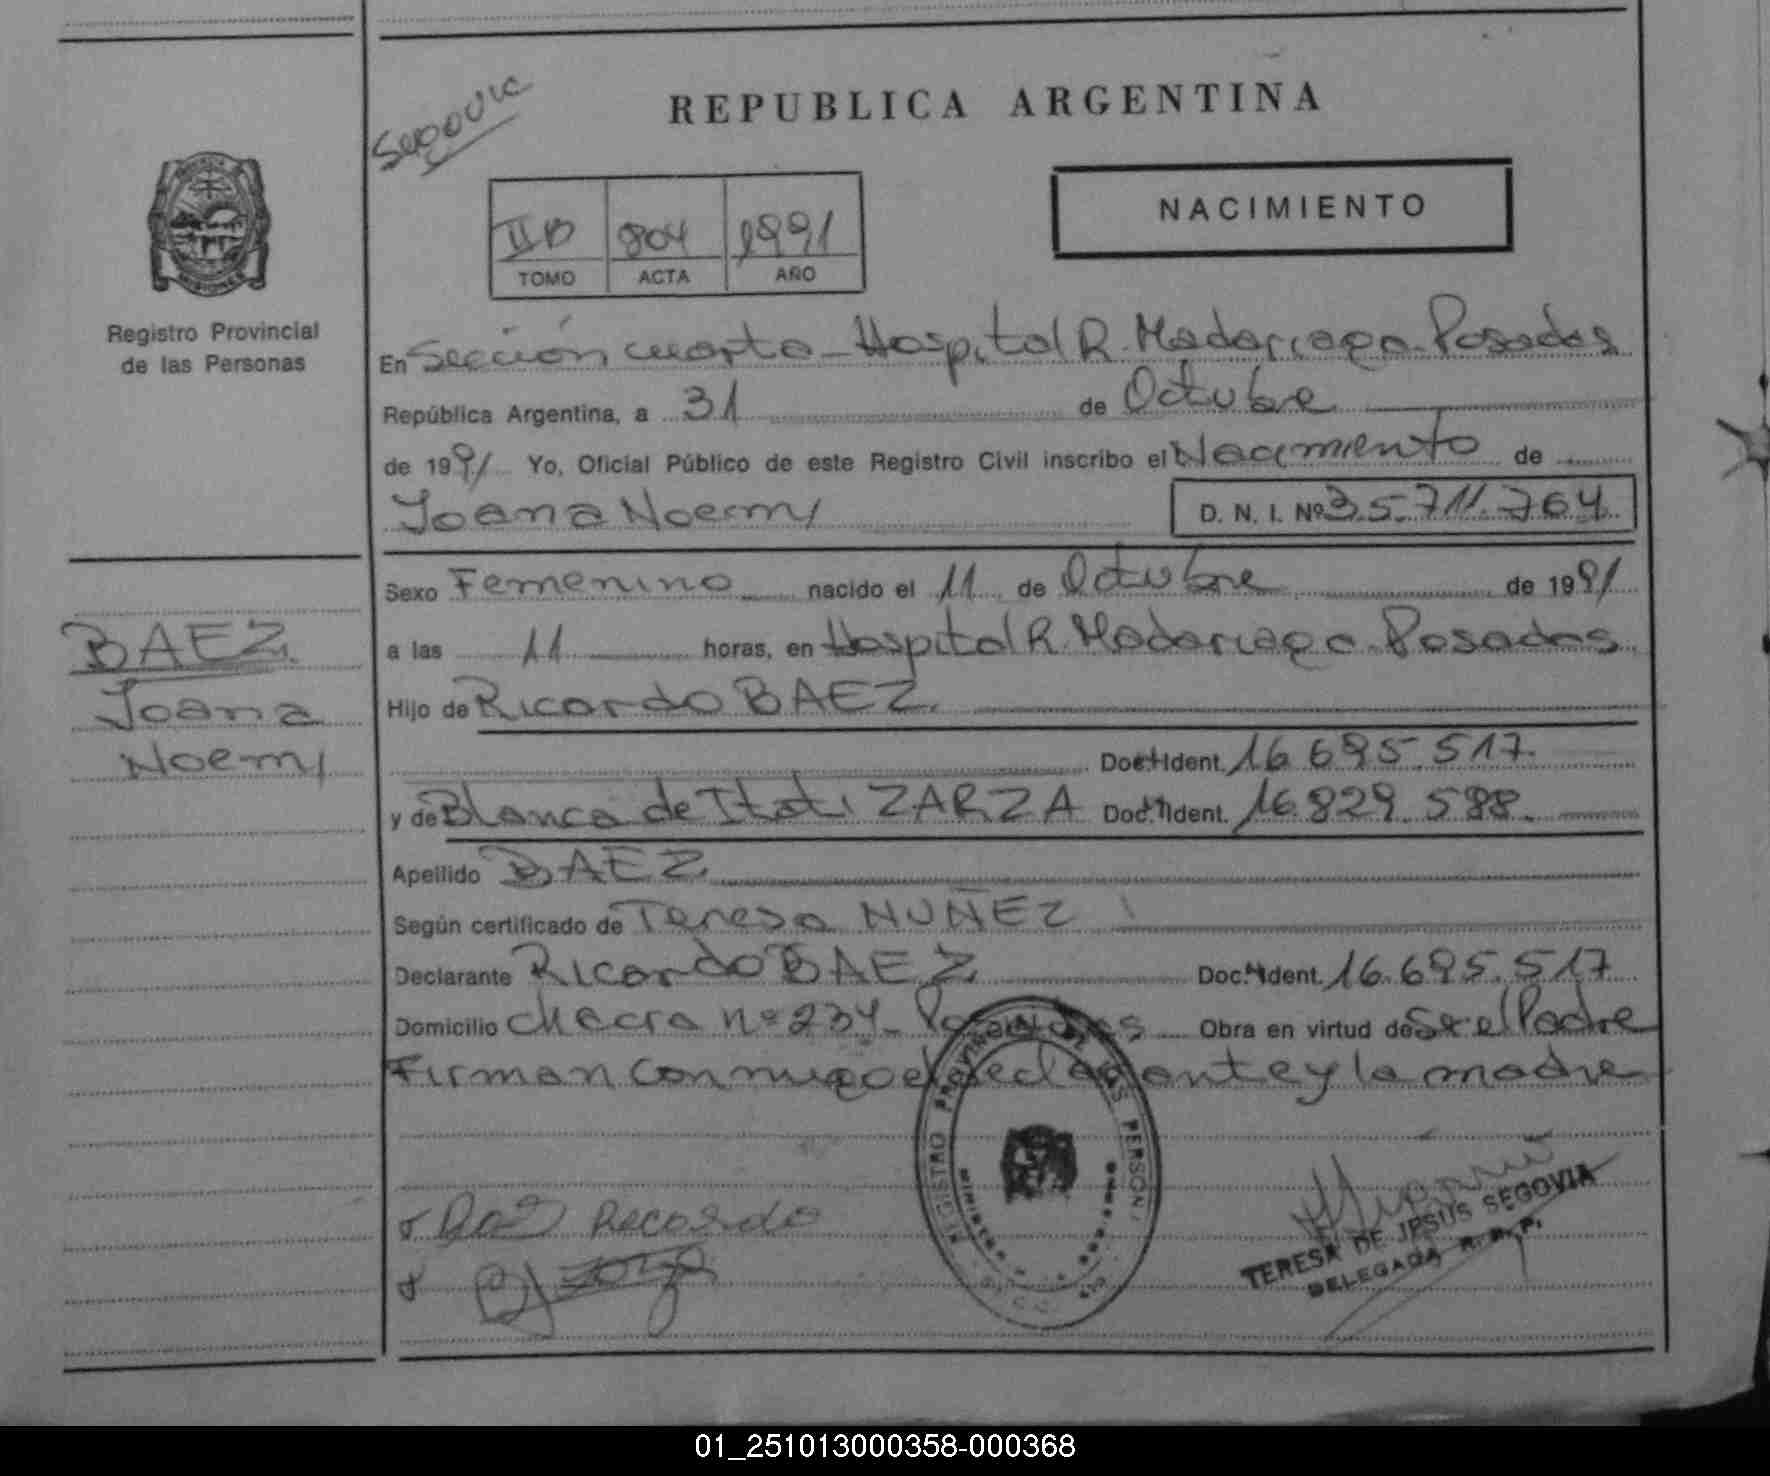 REPUBLICA ARGENTINA
NACIMIENTO
804 1991
TOMO ACTA AÑO
Registro Provincial
de las Personas
En Sección cuarta - Hospital R. Madariaga - Posadas
República Argentina, a 31 de Octubre
de 1991 Yo, Oficial Público de este Registro Civil inscribo el Nacimiento de
Joana Noemi
D. N. I. Nº 35.711.764
Sexo Femenino nacido el 11 de Octubre de 1991
a las 11 horas, en Hospital R. Madariaga - Posadas
BAEZ
Joana
Noemi
Hijo de Ricardo BAEZ.
Doc. Ident. 16.695.517
y de Blanca de Itati ZARZA Doc. Ident. 16.829.598.
Apellido BAEZ
Según certificado de Teresa NUÑEZ
Declarante Ricardo BAEZ Doc. Ident. 16.695.517
Domicilio Chacra nº 234 - Posadas Obra en virtud de Ser el Padre
Firman conmigo el declarante y la madre
Ricardo
REGISTRO PROVINCIAL DE LAS PERSONAS
TERESA DE JESUS SEGOVIA
DELEGADA R. P. P.
01_251013000358-000368